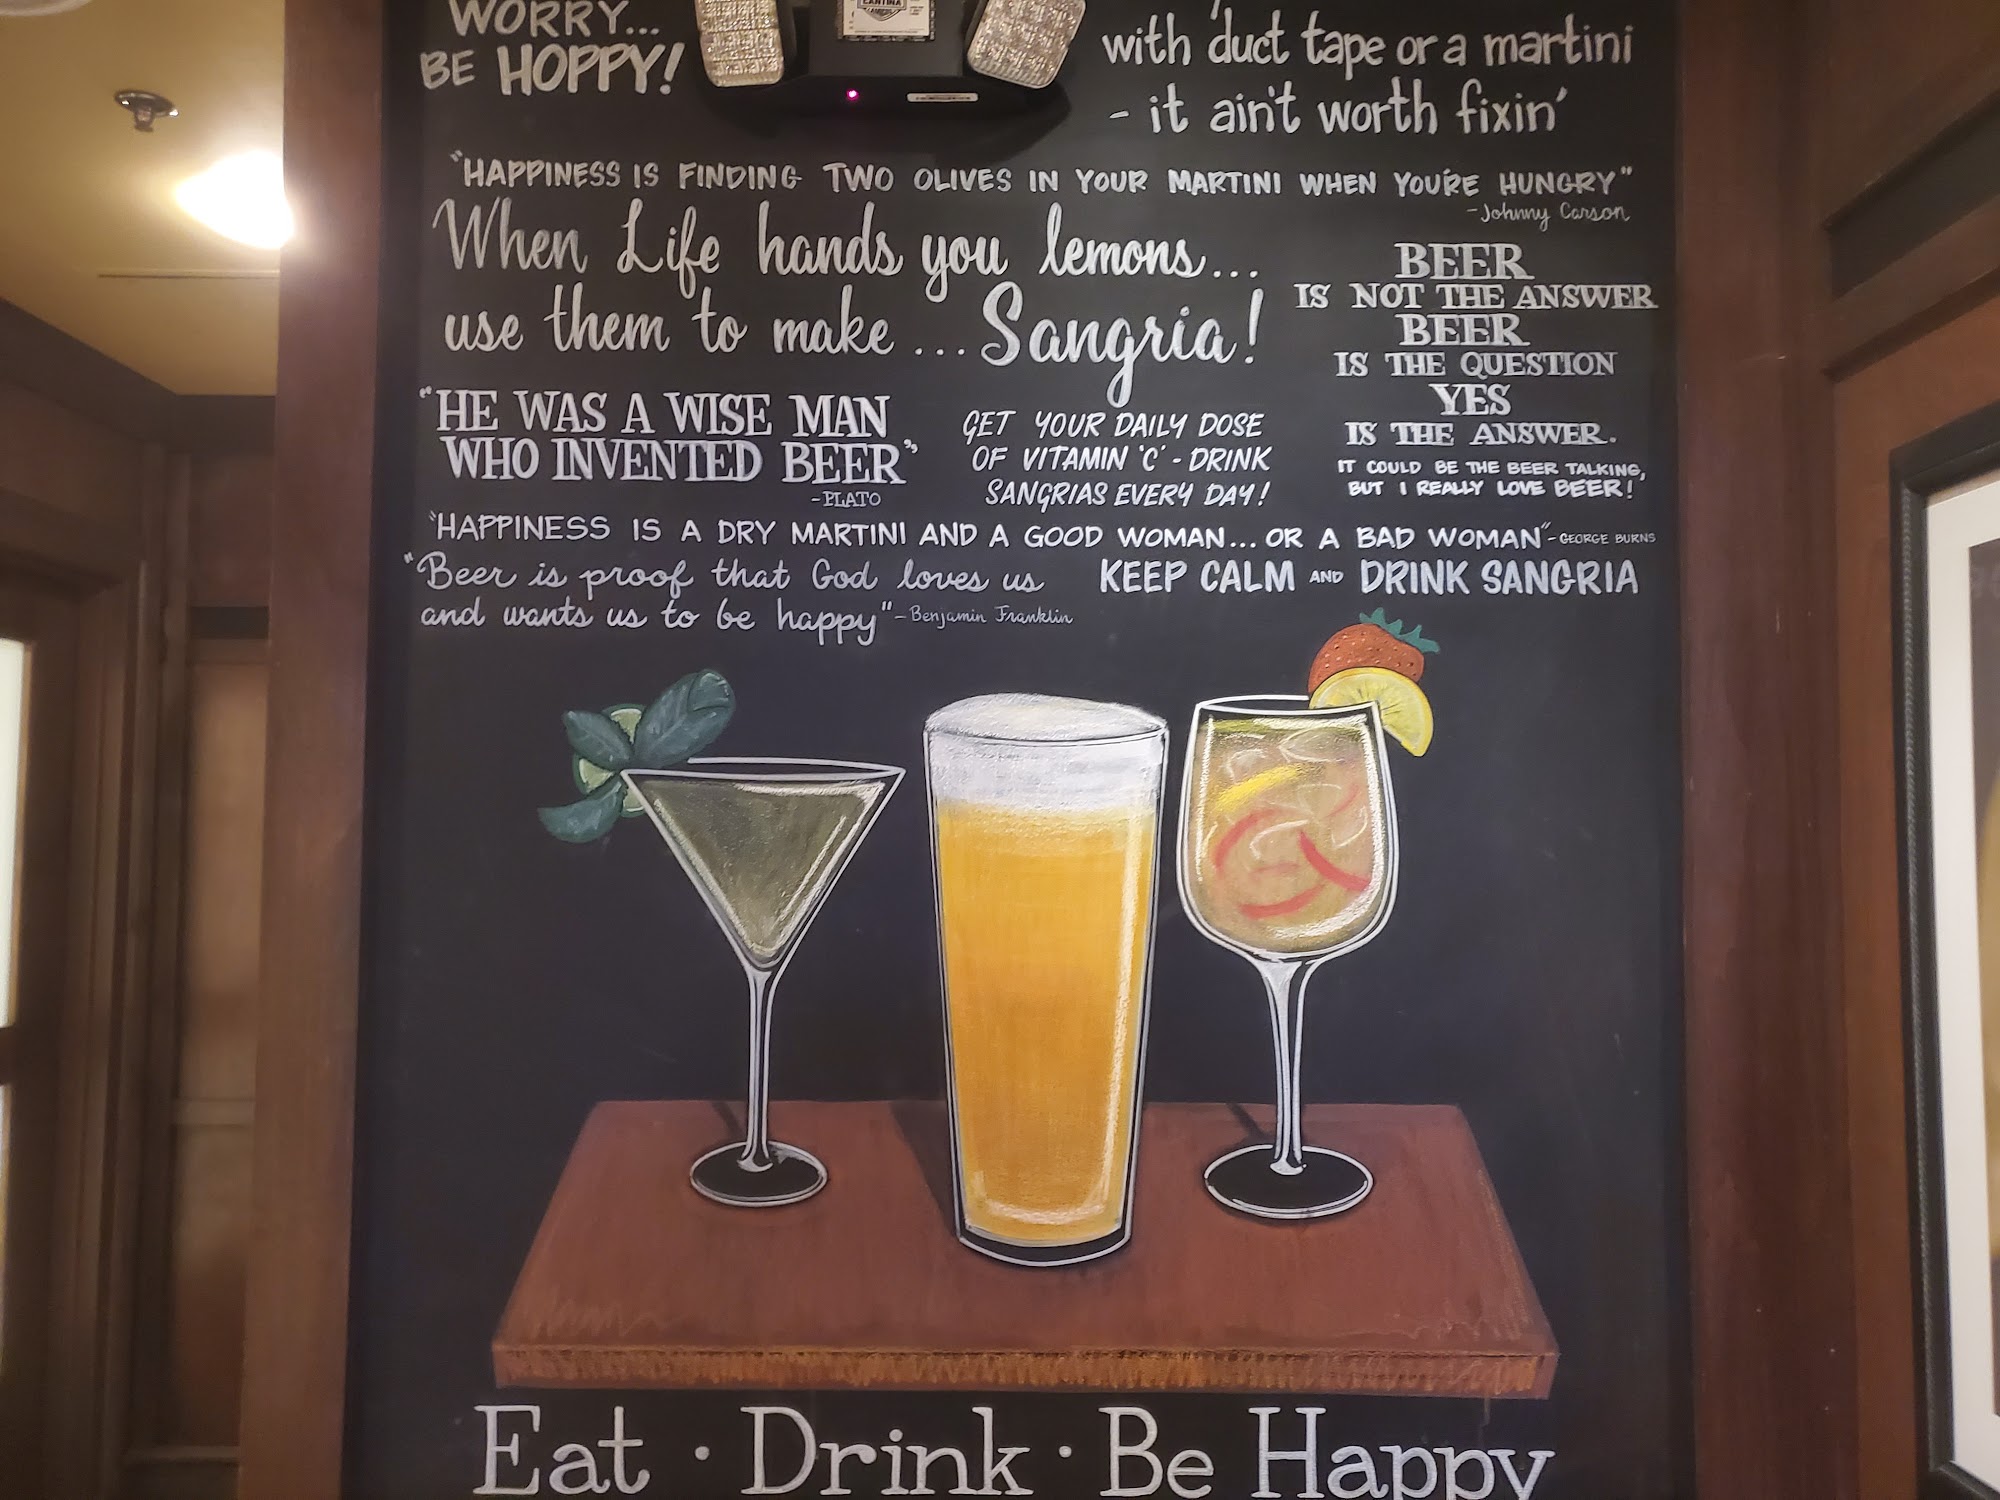 WORRY...
BE HOPPY!
CANTINA
with duct tape or a martini
- it ain't worth fixin'
"HAPPINESS IS FINDING TWO OLIVES IN YOUR MARTINI WHEN YOU'RE HUNGRY"
- Johnny Carson
When Life hands you lemons...
use them to make ... Sangria!
BEER
IS NOT THE ANSWER
BEER
IS THE QUESTION
YES
IS THE ANSWER.
IT COULD BE THE BEER TALKING,
BUT I REALLY LOVE BEER!
"HE WAS A WISE MAN
WHO INVENTED BEER"
-PLATO
GET YOUR DAILY DOSE
OF VITAMIN 'C' - DRINK
SANGRIAS EVERY DAY!
"HAPPINESS IS A DRY MARTINI AND A GOOD WOMAN... OR A BAD WOMAN" - GEORGE BURNS
"Beer is proof that God loves us
and wants us to be happy" - Benjamin Franklin
KEEP CALM AND DRINK SANGRIA
Eat · Drink · Be Happy